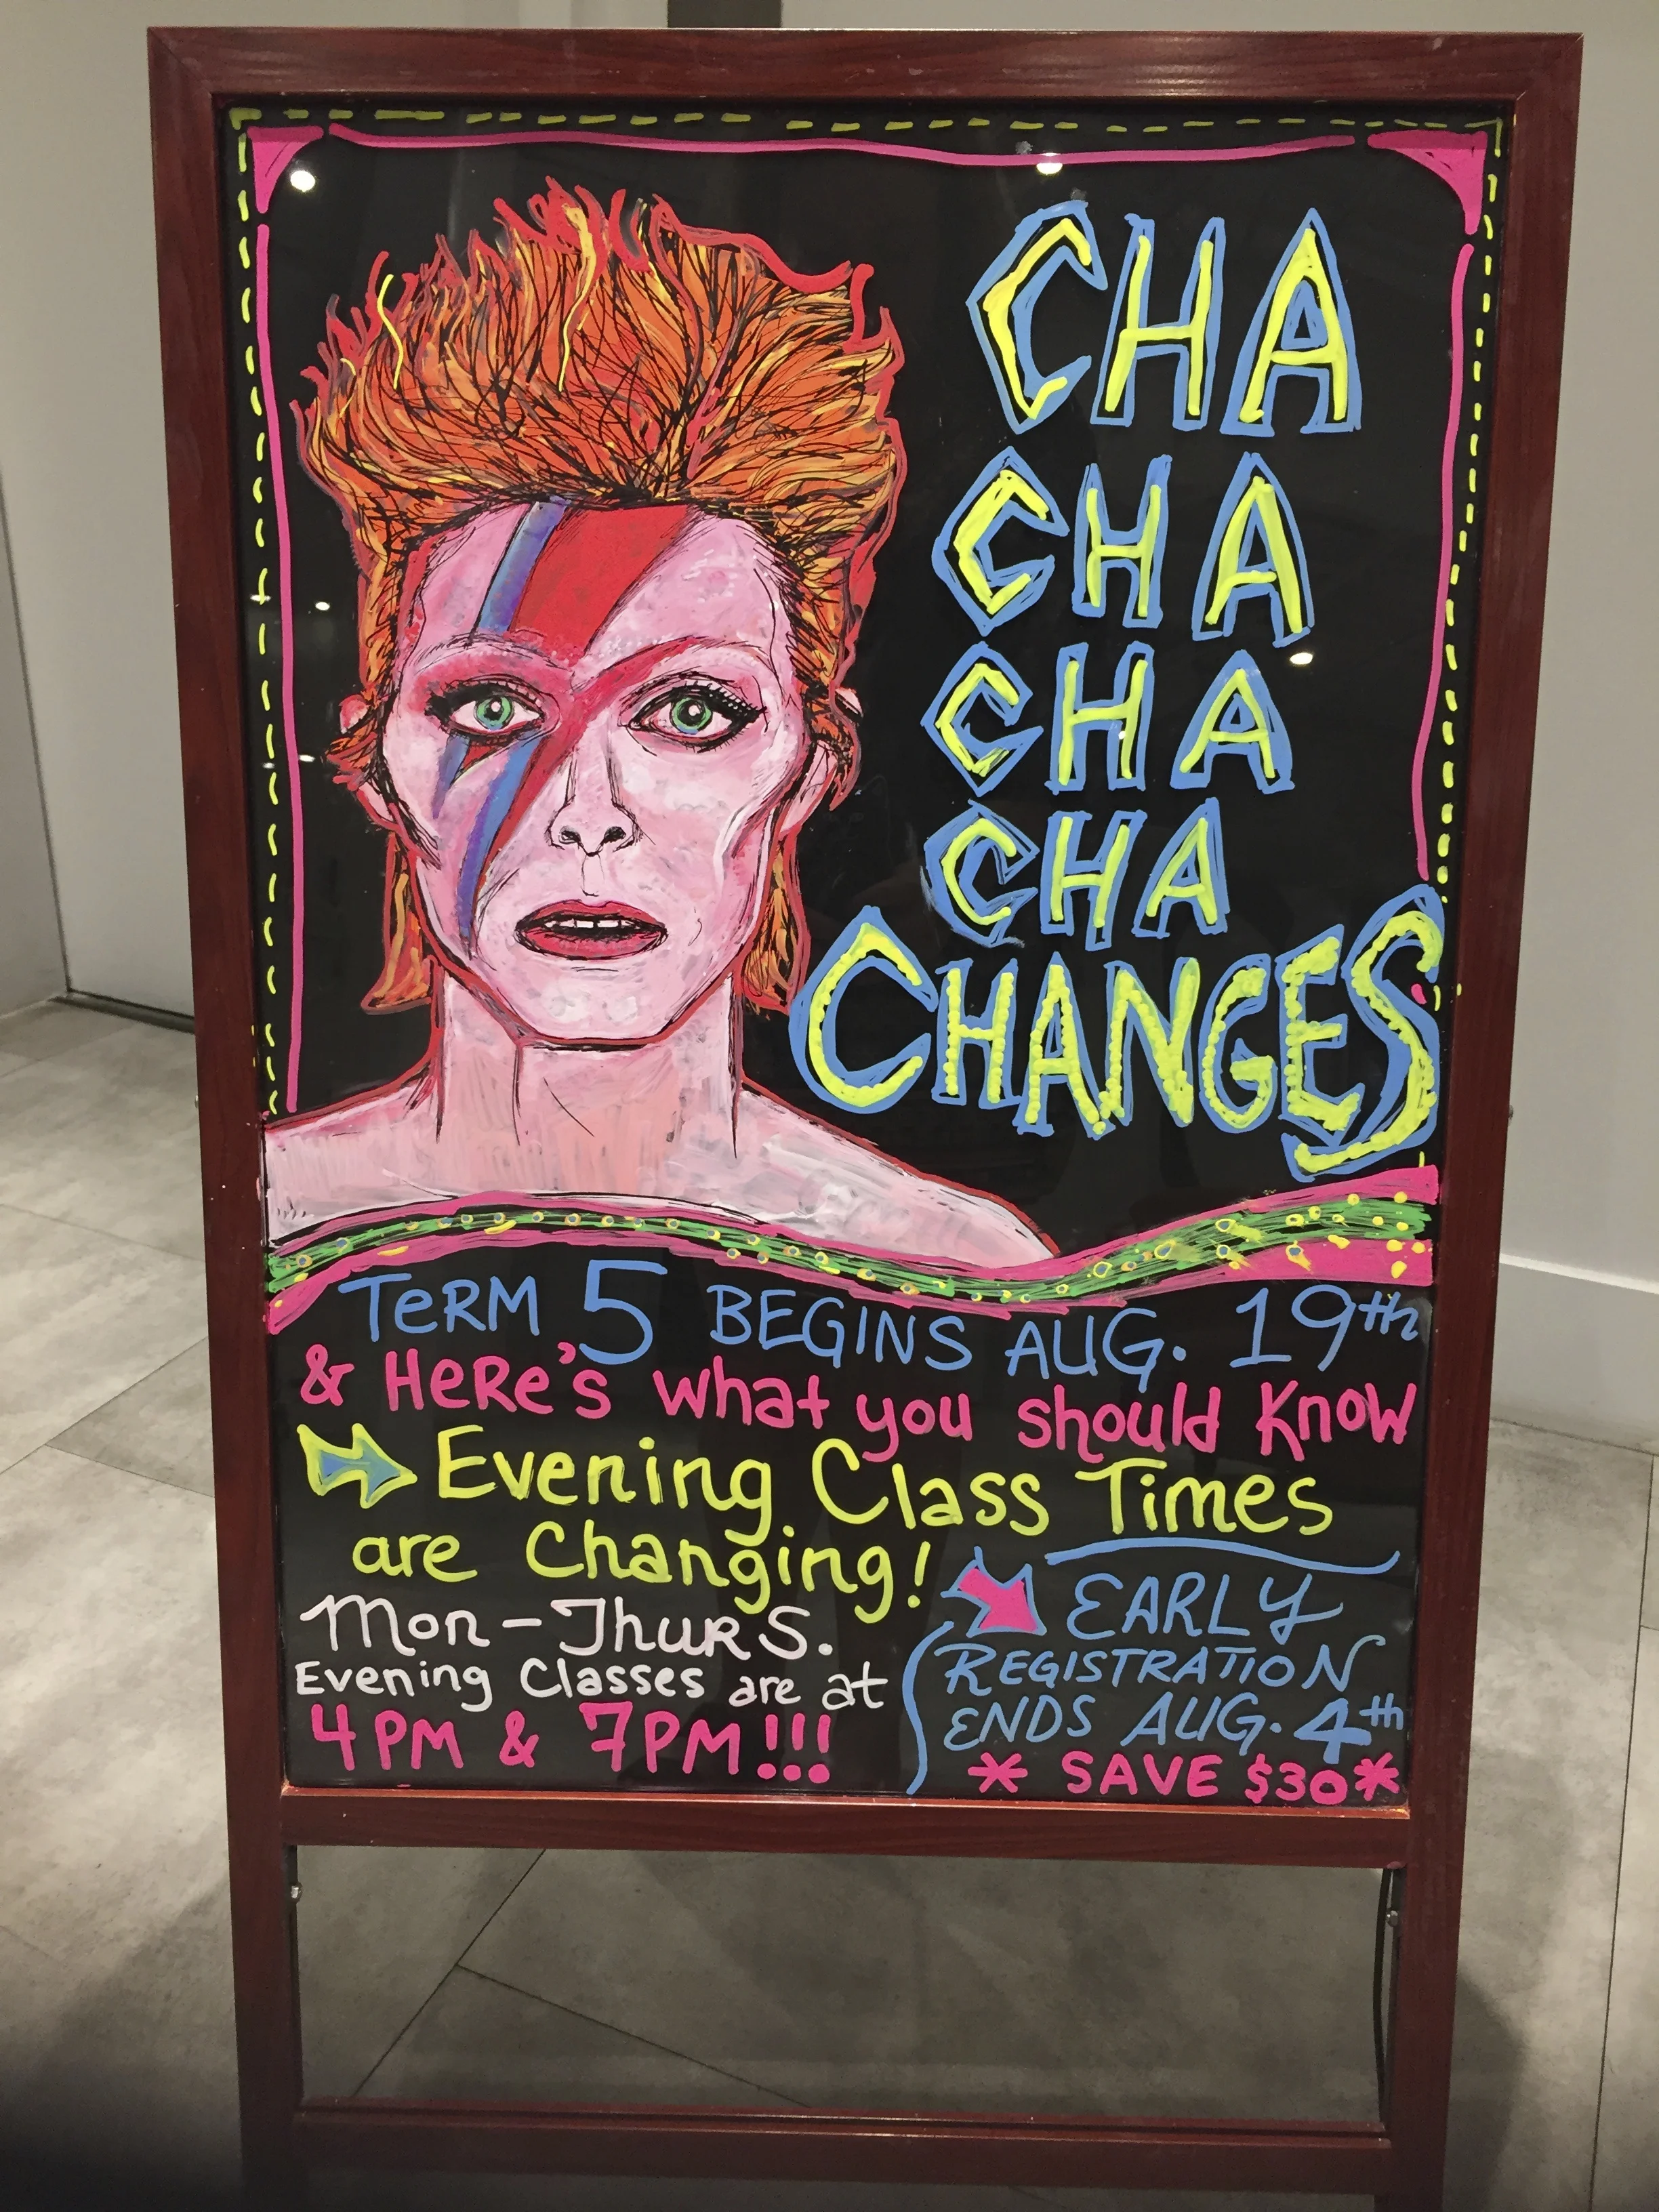 CHA
CHA
CHA
CHA
CHANGES
TeRM 5 BEGINS AUG. 19th
& HeRe's what you should Know
Evening Class Times
are Changing!
Mon-Thurs.
Evening Classes are at
4PM & 7PM!!!
EARLY
REGISTRATION
ENDS AUG. 4th
* SAVE $30*